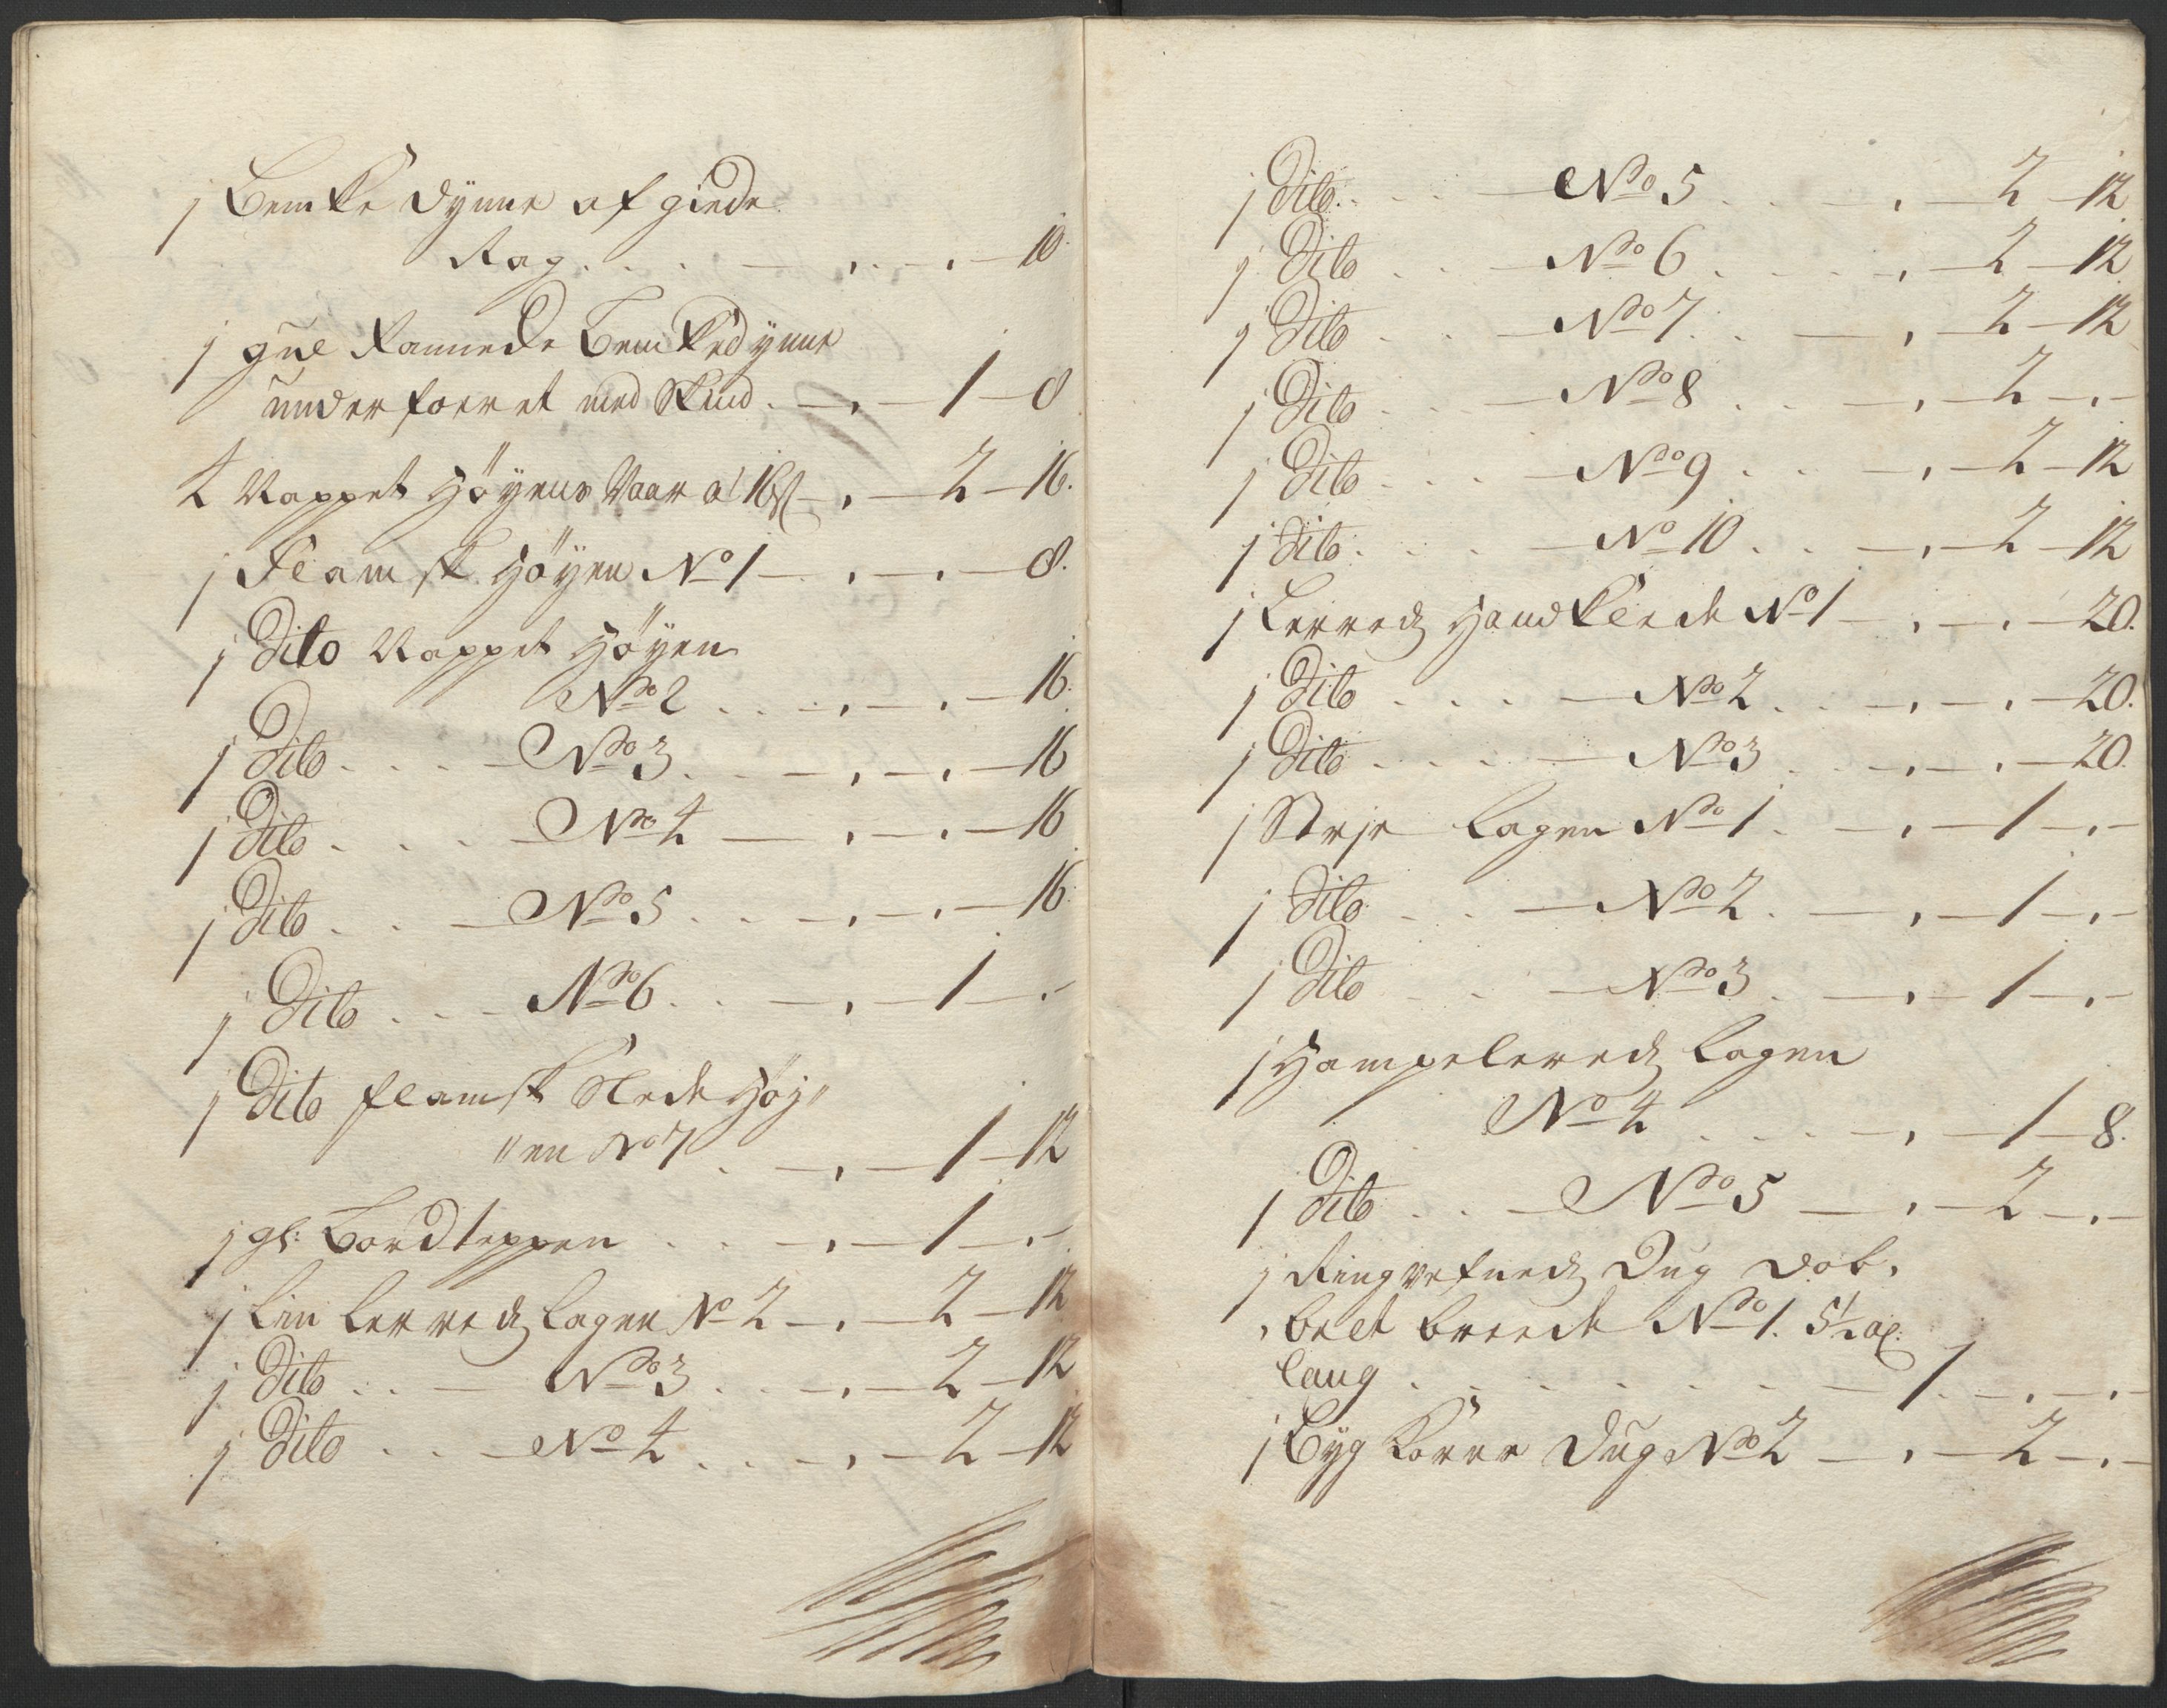 1 Benke dynne af giede
Rag . . . . — , . — , — 10.
1 gul Rannede Benkedynne
underforret med Skind . — , — 1 — 8
4 Nappet Høyens Vaar a 16 s — , — 2 — 16.
1 Flamsk Høyen No 1 — . , — , — 8.
1 Dito Nappet Høyen
No 2 . . . — , — , — 16.
1 Dito . . . . — No 3 . . . — , — , — 16
1 Dito . . . . — No 4 — , — , — 16
1 Dito . . — No 5 . . . — , — , — 16.
1 Dito . . . — No 6 . . . — , — 1 — , —
1 Dito flamsk Slede Høy„
„en No 7 . — , — 1 — 12
1 gl: Bordteppen . . . — , — 1 — , —
1 Lin Lerreds Lagen No 2 — , — 2 — 12
1 Dito . . — No 3 . . . — , — 2 — 12
1 Dito . . . — No 4 . . . — , — 2 — 12
1 Dito . . . . — No 5 . . . — , — 2 — 12
1 Dito . . . — No 6 . . . . — , — 2 — 12
1 Dito . . . — No 7 . . . — , — 2 — 12
1 Dito . . . — No 8 . . . — , — 2 — , —
1 Dito . . . — No 9 . . . — , — 2 — 12
1 Dito . . . . — No 10 . . . — , — 2 — 12
1 Lerreds Handklede No 1 — , — , — 20.
1 Dito . . . . — No 2 . . . — , — , — 20.
1 Dito . . . . — No 3 . . . — , — , — 20.
1 Strje Lagen No 1 . — , — 1 — , —
1 Dito . . . — No 2 . — , — 1 — , —
1 Dito . . . — No 3 . — , — 1 — , —
1 Hampelereds Lagen
No 4 . . . . — , — 1 — 8.
1 Dito . . . — No 5 — , — 2 — , —
1 Ringvefneds Dug dob,
,belt breede No 1. 5½ al:
lang . . . . . . . — 1 . — , — , —
1 Byg Korns Dug No 2 — , — 2 — , —